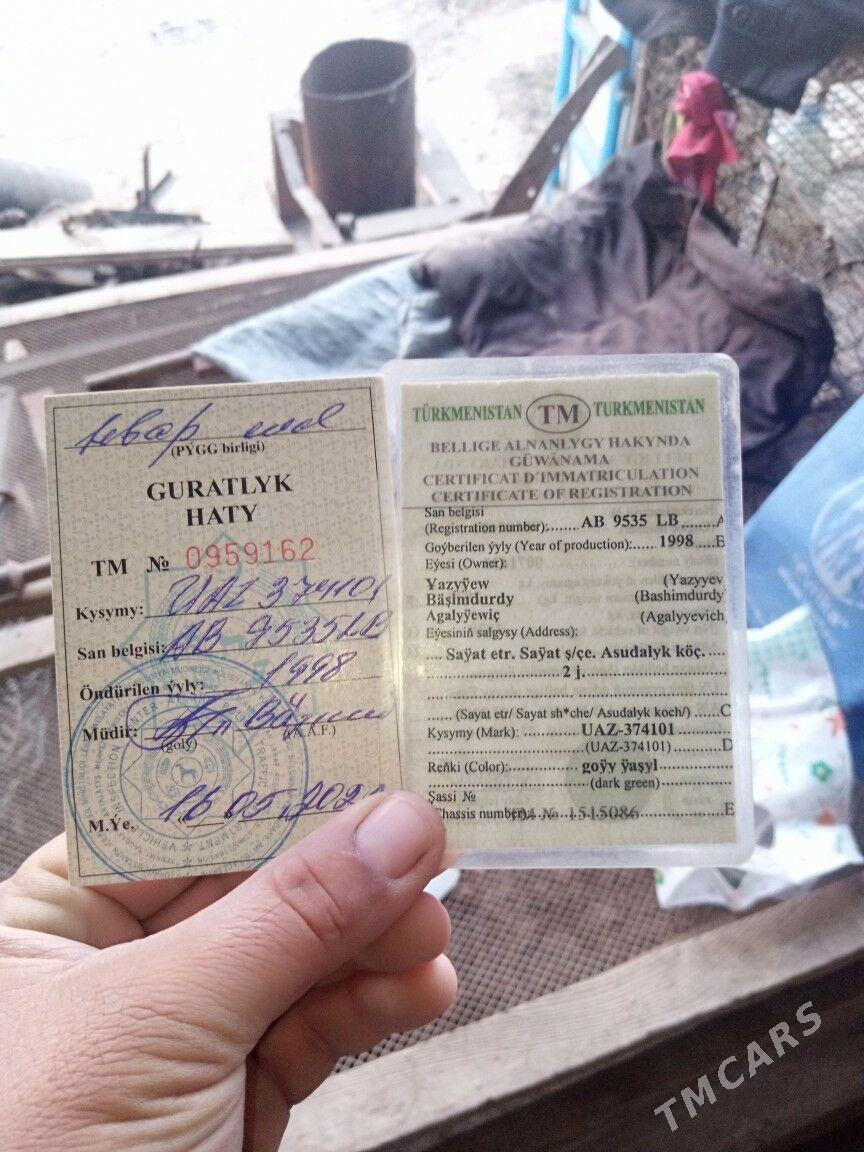 (PÝGG birligi)
GURATLYK
HATY
TM № 0959162
Kysymy: UAZ 374101
San belgisi: AB 9535 LB
Öndürilen ýyly: 1998
Müdir:
(goly) (A.A.F.)
M.Ýe. 16.05.202
TÜRKMENISTAN TM TURKMENISTAN
BELLIGE ALNANLYGY HAKYNDA
GÜWÄNAMA
CERTIFICAT D'IMMATRICULATION
CERTIFICATE OF REGISTRATION
San belgisi
(Registration number):...... AB 9535 LB ...... A
Goýberilen ýyly (Year of production):..... 1998 ....E
Eýesi (Owner):
Yazyýew (Yazyyev
Bäşimdurdy (Bashimdurdy
Agalyýewiç (Agalyyevich
Eýesiniň salgysy (Address):
.... Saýat etr. Saýat ş/çe. Asudalyk köç.
2 j.
(Sayat etr/ Sayat sh*che/ Asudalyk koch/) C
Kysymy (Mark): UAZ-374101
(UAZ-374101) D
Reňki (Color): goýy ýaşyl
(dark green)
Şassi №
Chassis number): № 1515086 E
TMCARS